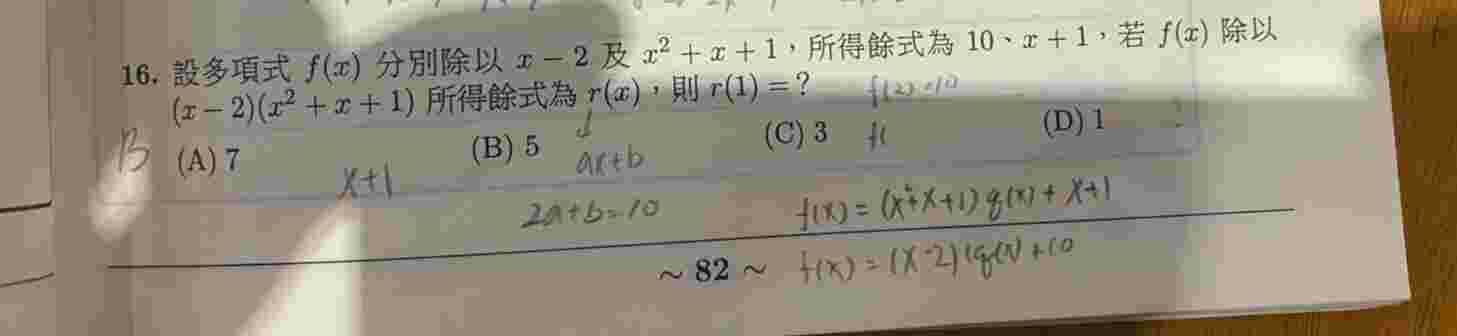 16. 設多項式 f(x) 分別除以 x − 2 及 x² + x + 1，所得餘式為 10、x + 1，若 f(x) 除以
(x − 2)(x² + x + 1) 所得餘式為 r(x)，則 r(1) = ?
f(2)=10
B (A) 7 (B) 5 (C) 3 (D) 1
f(
x+1
ax+b
2a+b=10
f(x) = (x²+x+1) q(x) + x+1
~ 82 ~
f(x) = (x-2) q(x) + 10